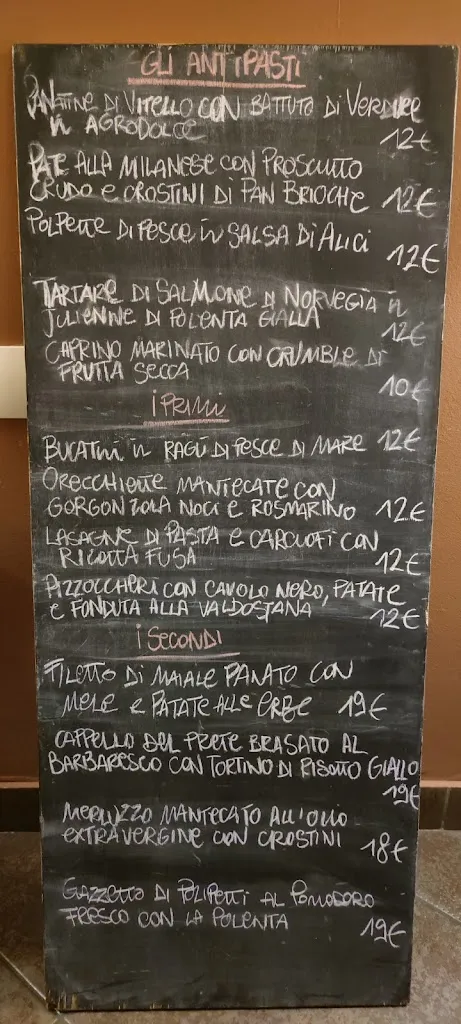 GLI ANTIPASTI
PANATINE DI VITELLO CON BATTUTO DI VERDURE
IN AGRODOLCE 12€
PATE ALLA MILANESE CON PROSCIUTTO
CRUDO E CROSTINI DI PAN BRIOCHE 12€
POLPETTE DI PESCE IN SALSA DI ALICI
12€
TARTARE DI SALMONE DI NORVEGIA IN
JULIENNE DI POLENTA GIALLA 12€
CAPRINO MARINATO CON CRUMBLE DI
FRUTTA SECCA 10€
I PRIMI
BUCATINI IN RAGÙ DI PESCE DI MARE 12€
ORECCHIETTE MANTECATE CON
GORGONZOLA NOCI E ROSMARINO 12€
LASAGNE DI PASTA E CARCIOFI CON
RICOTTA FUSA 12€
PIZZOCCHERI CON CAVOLO NERO, PATATE
E FONDUTA ALLA VALDOSTANA 12€
I SECONDI
FILETTO DI MAIALE PANATO CON
MELE E PATATE ALLE ERBE 19€
CAPPELLO DEL PRETE BRASATO AL
BARBARESCO CON TORTINO DI RISOTTO GIALLO
19€
MERLUZZO MANTECATO ALL'OLIO
EXTRAVERGINE CON CROSTINI 18€
GAZZETTO DI POLIPETTI AL POMODORO
FRESCO CON LA POLENTA 19€